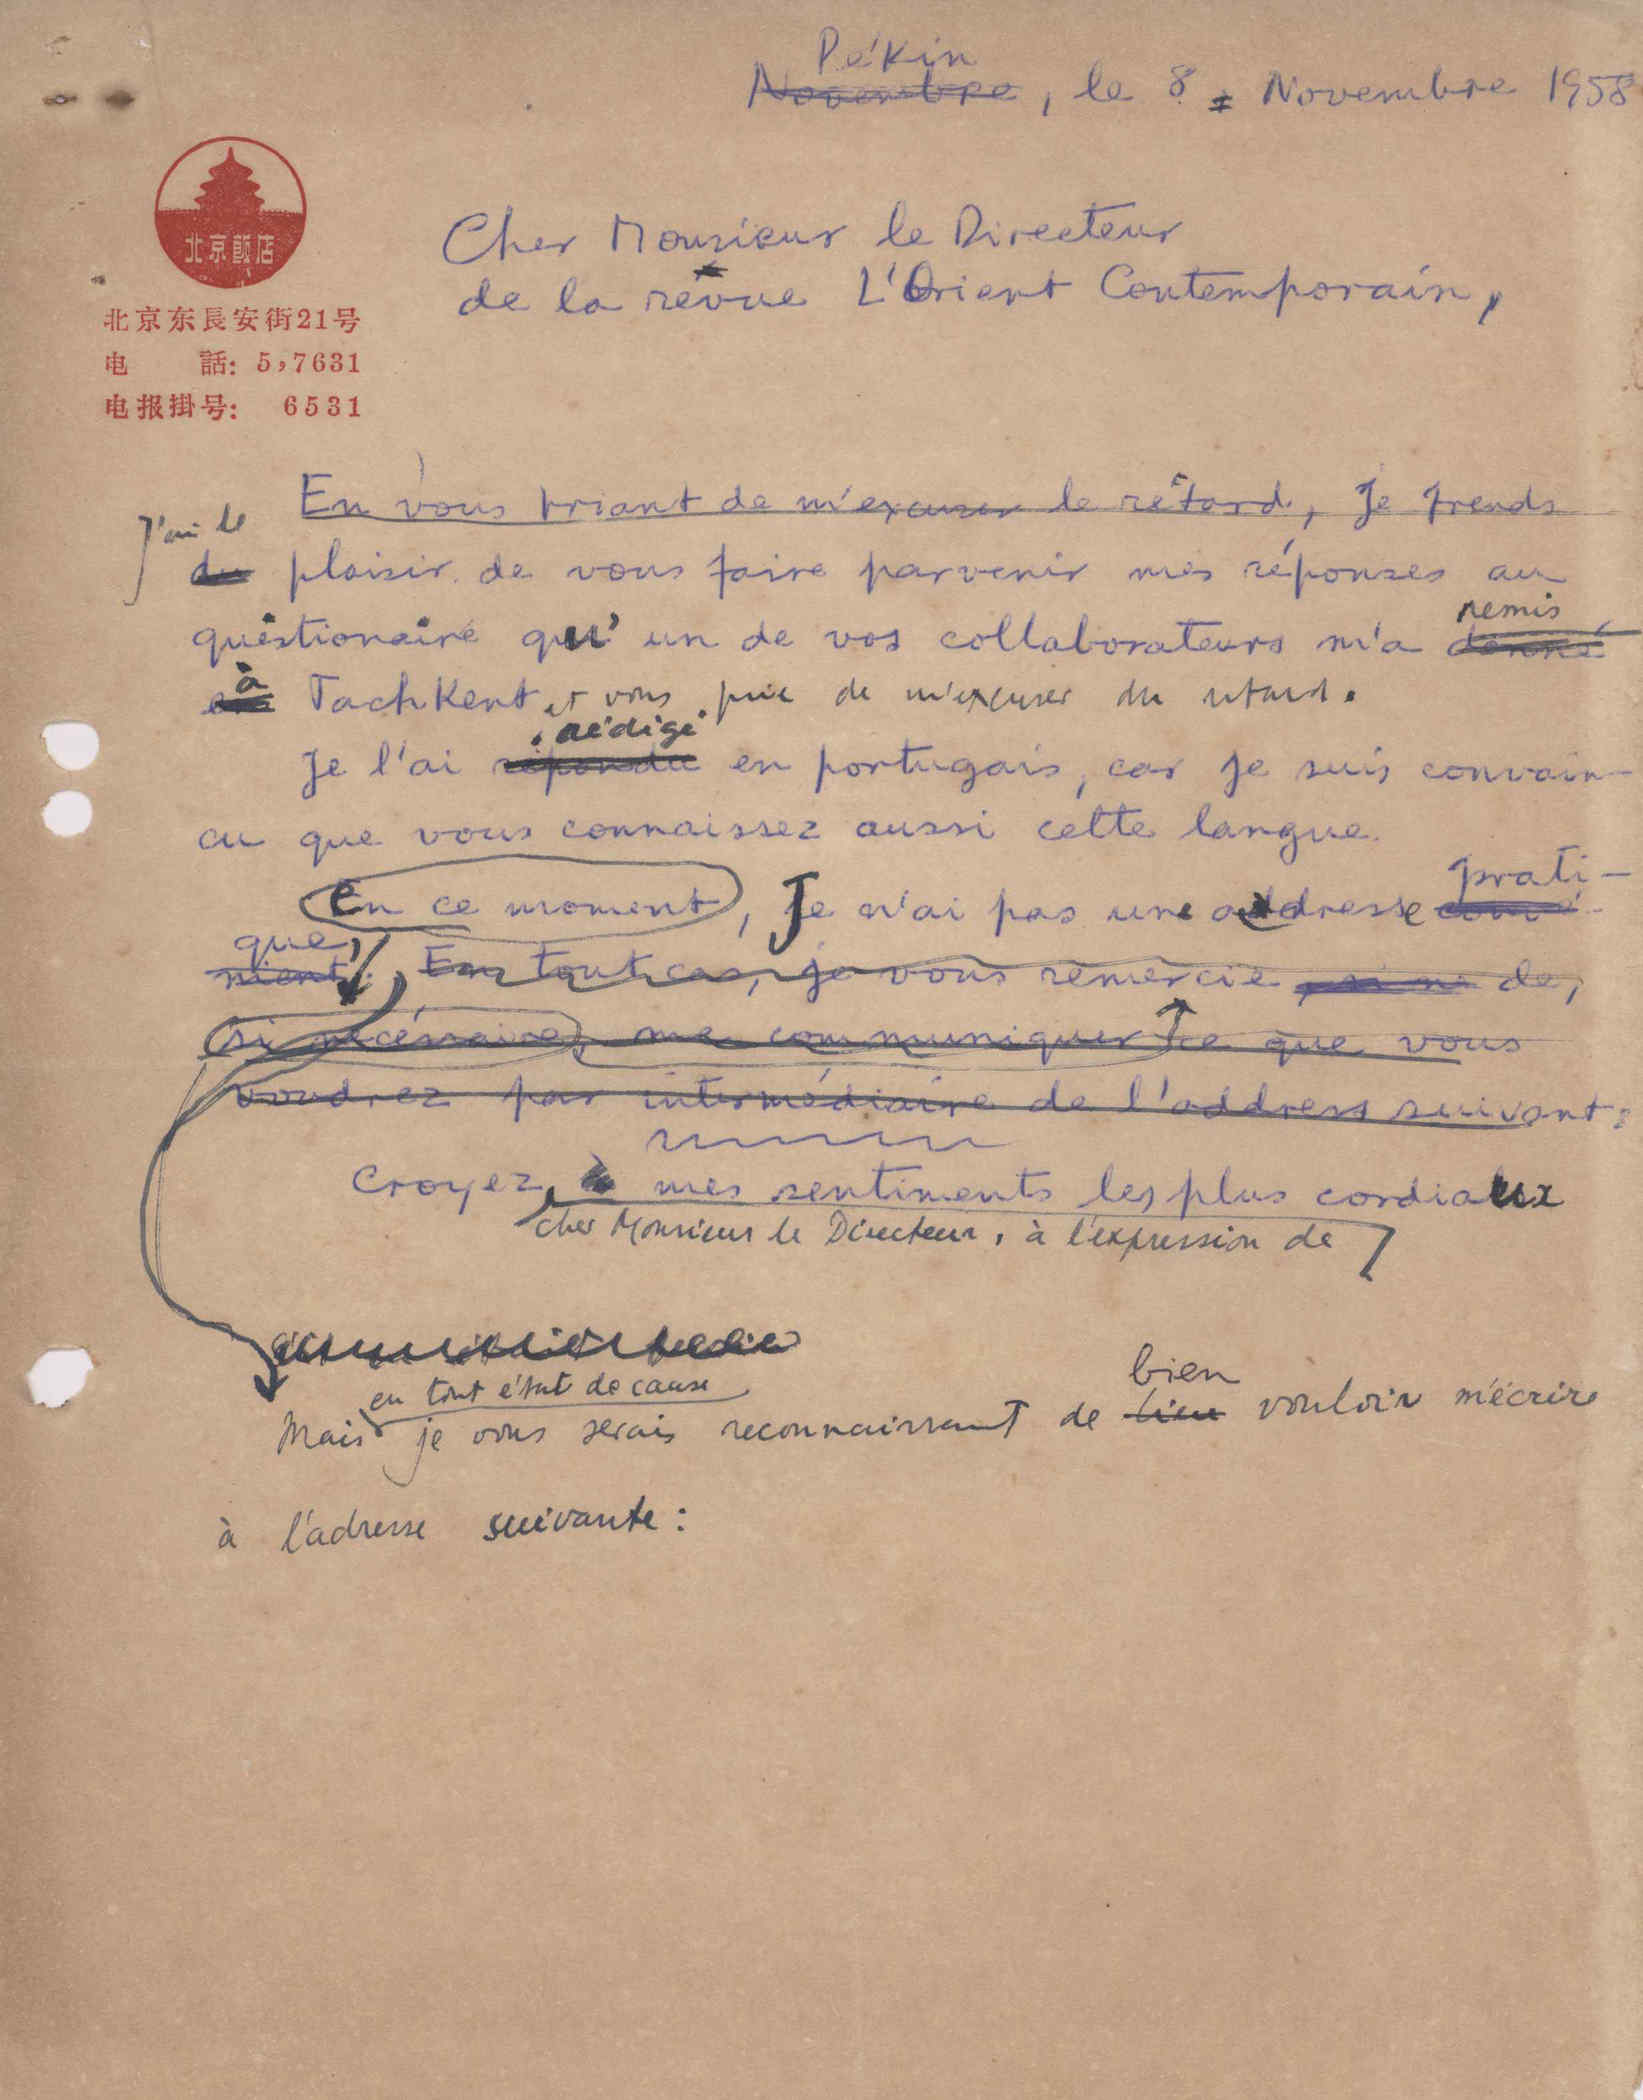 Pékin
Novembre, le 8 Novembre 1958
北京飯店
北京东長安街21号
电 話: 5,7631
电报掛号: 6531
Cher Monsieur le Directeur
de la revue L'Orient Contemporain,
En vous priant de m'excuser le retard, je prends
J'ai le
du plaisir de vous faire parvenir mes réponses au
remis
questionaire qu'un de vos collaborateurs m'a donné
à
en Tachkent et vous prie de m'excuser du retard.
rédigé
Je l'ai répondu en portugais, car je suis convain-
cu que vous connaissez aussi cette langue.
prati-
En ce moment, Je n'ai pas une addresse
que
nient. En tout cas, je vous remercie, si ne de,
si nécessaire, me communiquer ce que vous
voudrez par intermédiaire de l'address suivant:
Croyez, à mes sentiments les plus cordiaux
cher Monsieur le Directeur, à l'expression de
en tout état de cause
bien
Mais je vous serais reconnaissant de bien vouloir m'écrire
à l'adresse suivante: